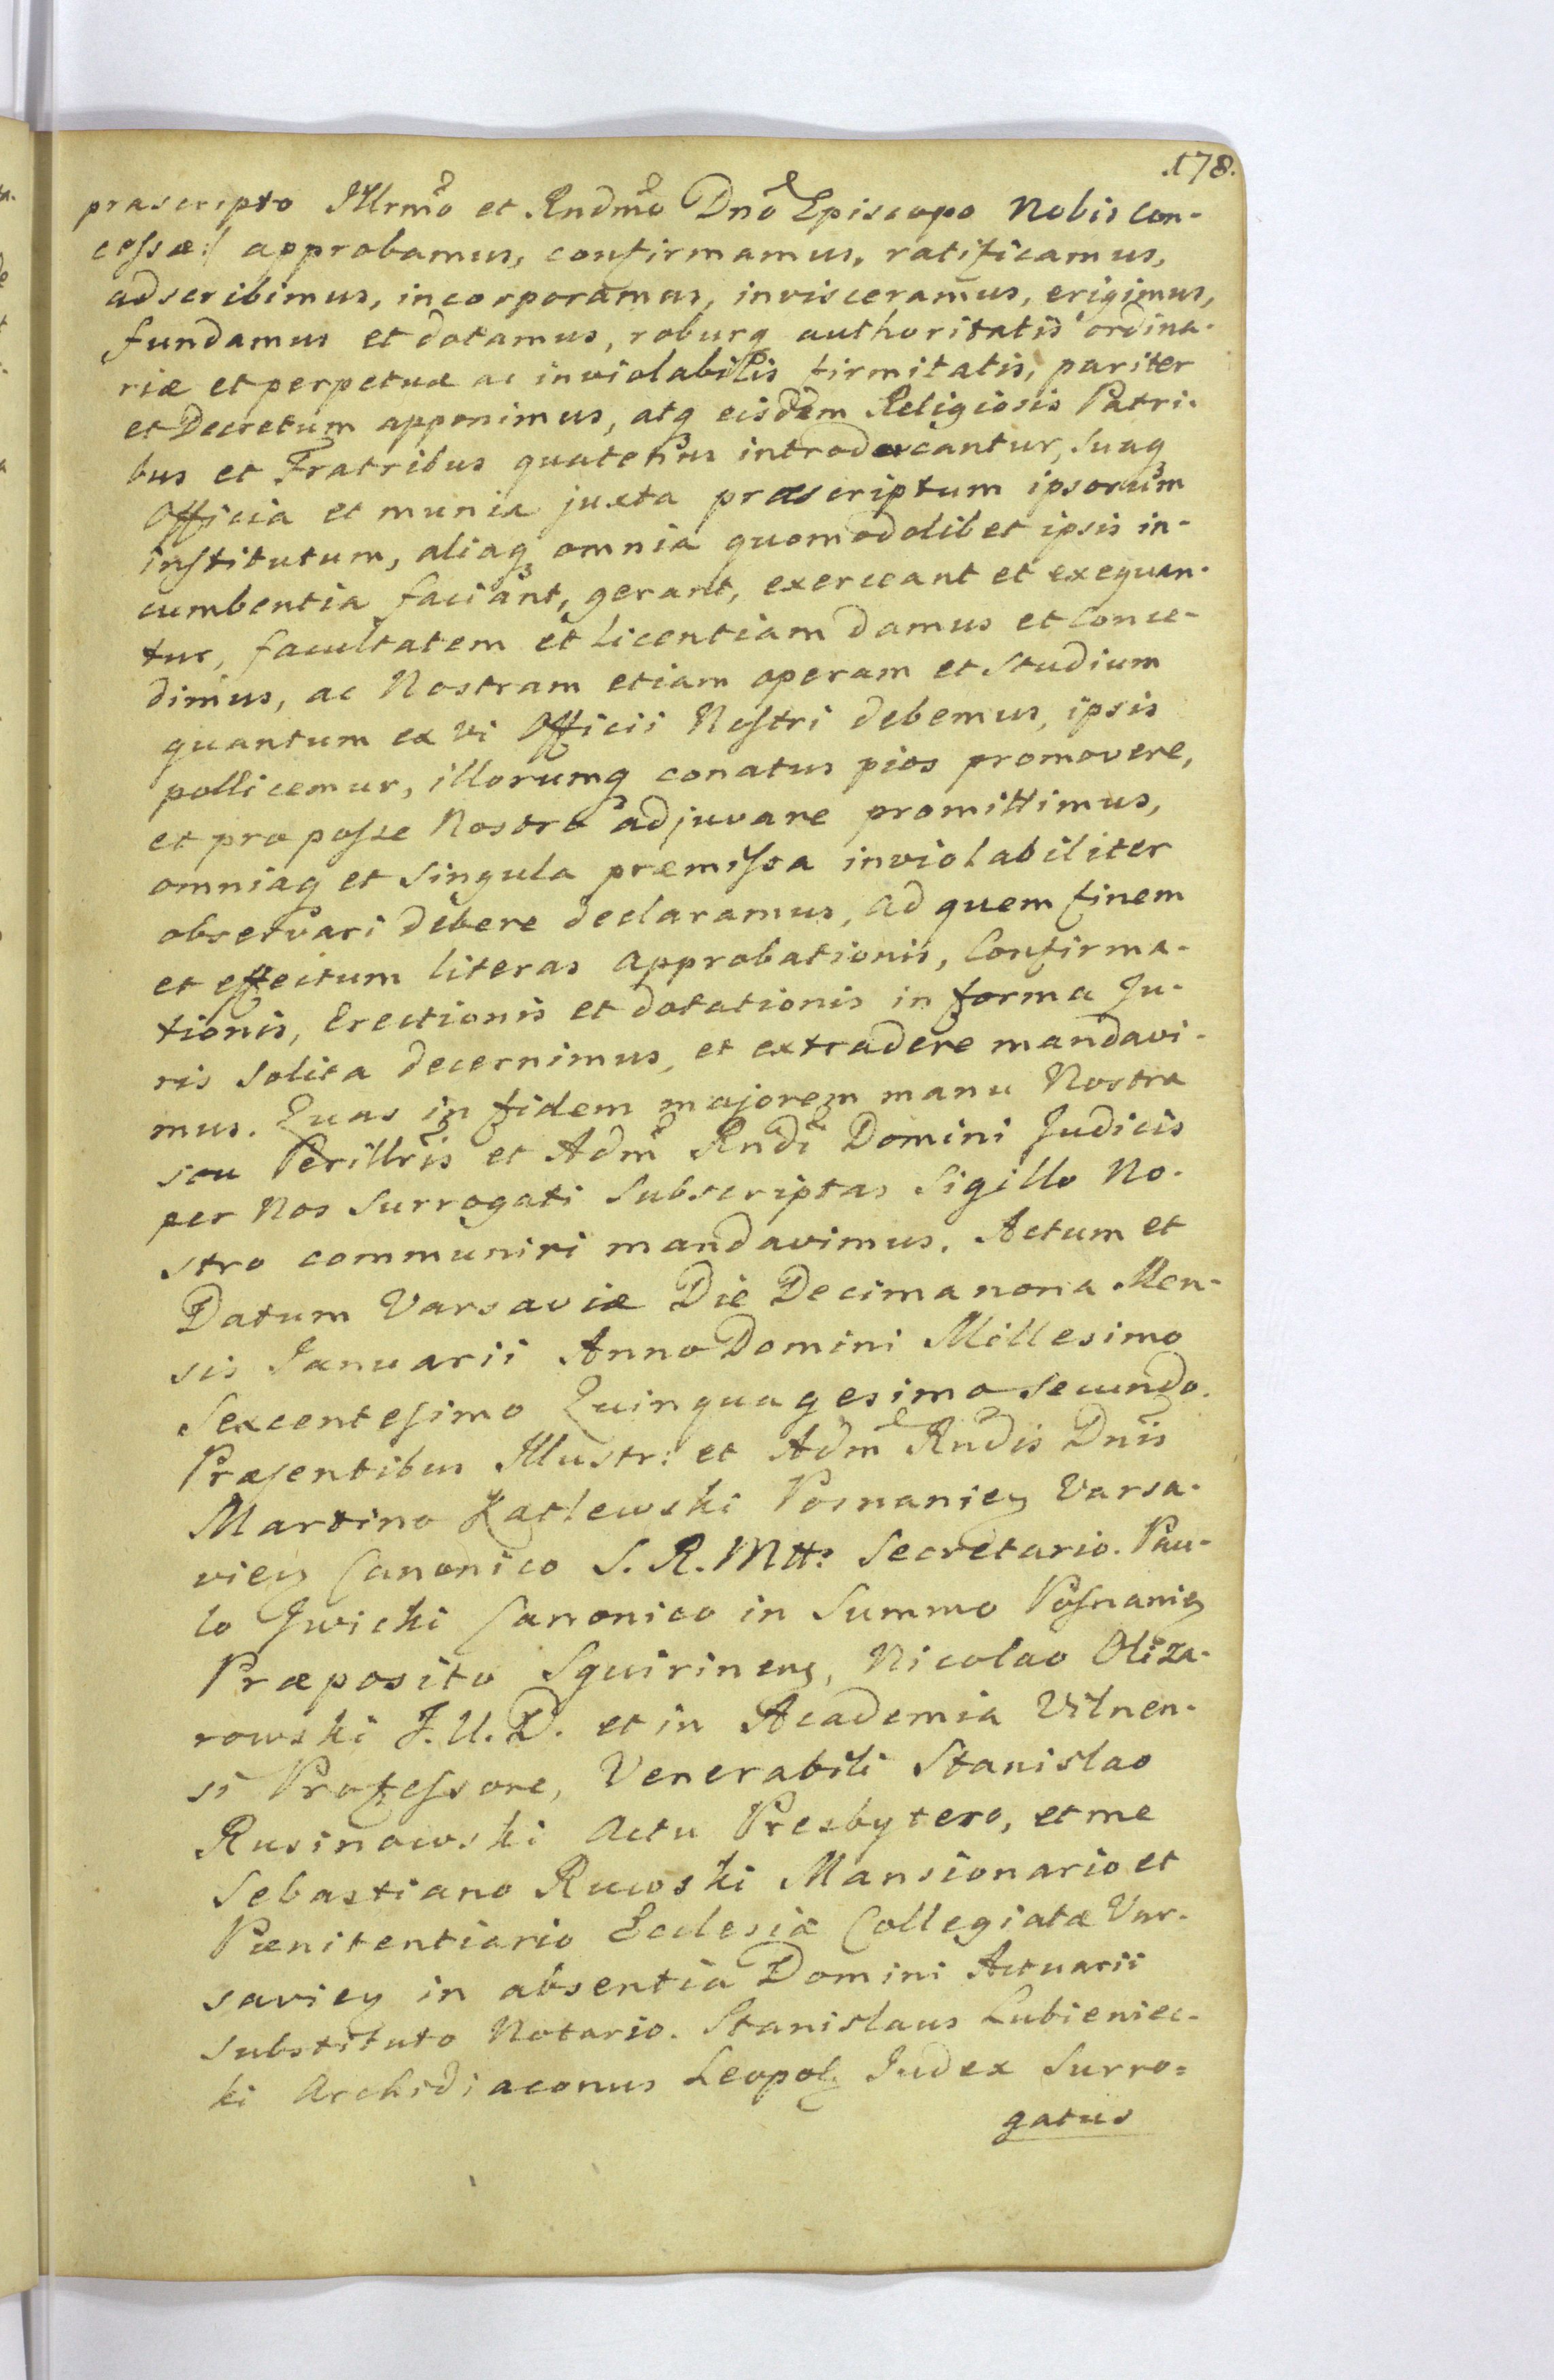 .178.
præscripto Illrmo et Rndmo Dno Episcopo Nobis con-
cessæ:/ approbamus, confirmamus, ratificamus,
adscribimus, incorporamus, invisceramus, erigimus,
fundamus et dotamus, roburq authoritatis ordina-
riæ et perpetuæ ac inviolabilis firmitatis, pariter
et Decretum apponimus, atq eisdem Religiosis Patri-
bus et Fratribus quatenus introducantur, suaq
Officia et munia juxta præscriptum ipsorum
institutum, aliaq omnia quomodolibet ipsis in-
cumbentia faciant, gerant, exerceant et exequan-
tur, facultatem et licentiam damus et conce-
dimus, ac Nostram etiam operam et studium
quantum ex vi Officii Nostri debemus, ipsis
pollicemur, illorumq conatus pios promovere,
et pro posse Nostro adjuvare promittimus,
omniaq et singula præmissa inviolabiliter
observari debere declaramus, ad quem finem
et effectum literas approbationis, Confirma-
tionis, Erectionis et dotationis in forma Ju-
ris solita decernimus, et extradere mandavi-
mus. Quas in fidem majorem manu Nostra
seu Perillris et Adm Rndi Domini Judicis
per Nos surrogati subscriptas Sigillo No-
stro communiri mandavimus. Actum et
Datum Varsaviæ Die Decima nona Men-
sis Januarii Anno Domini Millesimo
Sexcentesimo Quinquagesimo secundo.
Præsentibus Illustr: et Adm Rndis Dnis
Martino Posnanien Varsa-
vien Canonico S. R. Mtt: Secretario. Pau-
lo Canonico in Summo Posnanien
Præposito Squirinens, Nicolao Oliza-
rowski J. U. D. et in Academia Vilnen-
si Professore, Venerabili Stanislao
Rusinowski actu Presbytero, et me
Sebastiano Ruwski Mansionario et
Pænitentiario Ecclesiæ Collegiatæ Var-
savien in absentia Domini Actuarii
substituto Notario. Stanislaus Lubieniec-
ki Archidiaconus Leopol Judex surro=
gatus